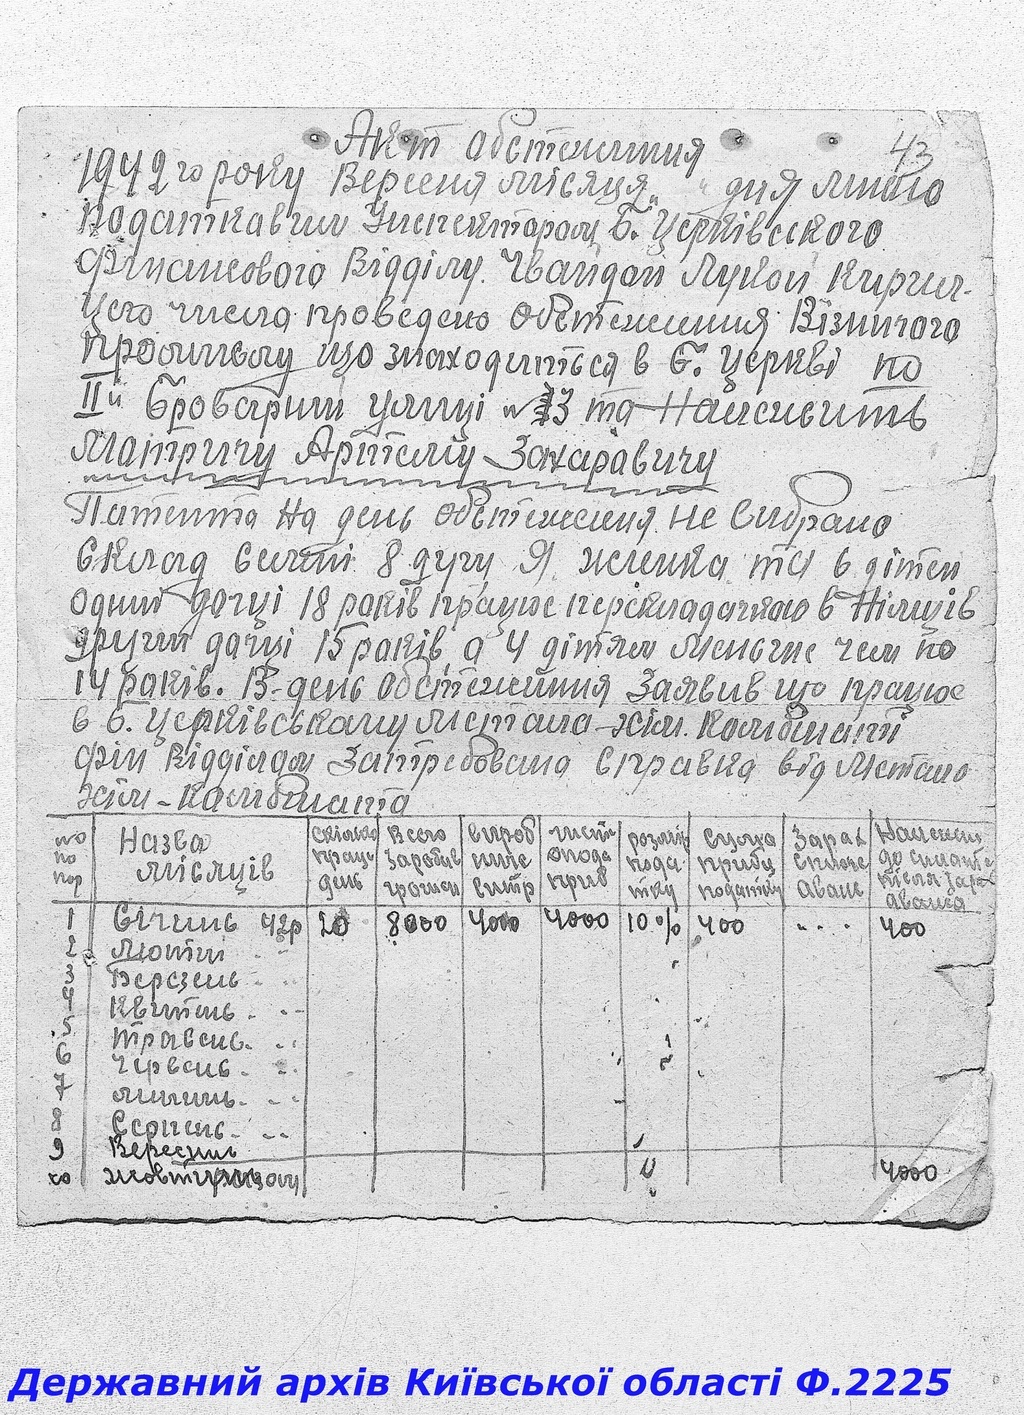 Акт обстеження
43
1942 го року Вересня місяця " " дня мною
податкавим Инспектаром Б. Церківсского
Фінансового Відділу. Чвандой Лукой Кирил.
Цего числа проведено обстеження Візничого
промислу що знаходиться в Б. Церкві по
IIй Броварний улиці № 33 та Належить
Матричу Артему Захаравичу
Патента на день обстеження не вибрано
Склад семї 8 душ Я. женка та 6 дітей
одний дочці 18 років працює перекладачкою в Німців
другий дочці 15 років, а 4 дітям меньше чем по
14 років. В день обстеження Заявив що працює
в Б. Церківському метало-хім. Комбинаті
фін Відділам Затребована Справка від метало
хім-Комбината
по по пор Назва місяців Скілько праце день Всего заробив грошей вироб ничіе витр чисти доход прив розмір пода тку сумма прибу податку Зарах аванс Належит до сплате після зарах аванса
1 Січень 42р 20 8000 4000 4000 10% 400 " . . . 400
2 Лютий " "
3 Березень " "
4 Квітень " "
5 Травень " "
6 Червень " "
7 Липень " "
8 Серпень " "
9 Вересень
10 жовтень 4000
Державний архів Київської області Ф.2225